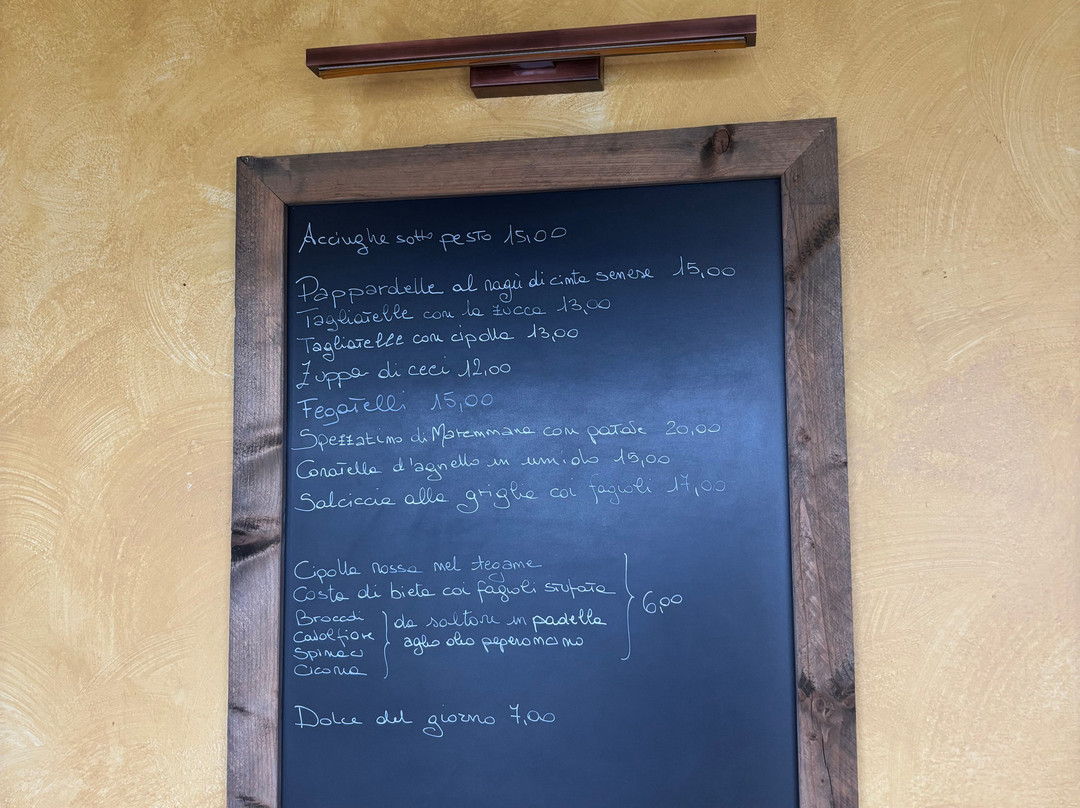 Acciughe sotto pesto 15,00
Pappardelle al ragù di cinta senese 15,00
Tagliatelle con la zucca 13,00
Tagliatelle con cipolla 13,00
Zuppa di ceci 12,00
Fegatelli 15,00
Spezzatino di Maremmana con patate 20,00
Coratella d'agnello in umido 15,00
Salciccia alla griglia coi fagioli 17,00
Cipolla rossa nel tegame
Costa di bieta coi fagioli stufata
Broccoli
Cavolfiore
Spinaci
Cicoria
da saltare in padella
aglio olio peperoncino
6,00
Dolce del giorno 7,00